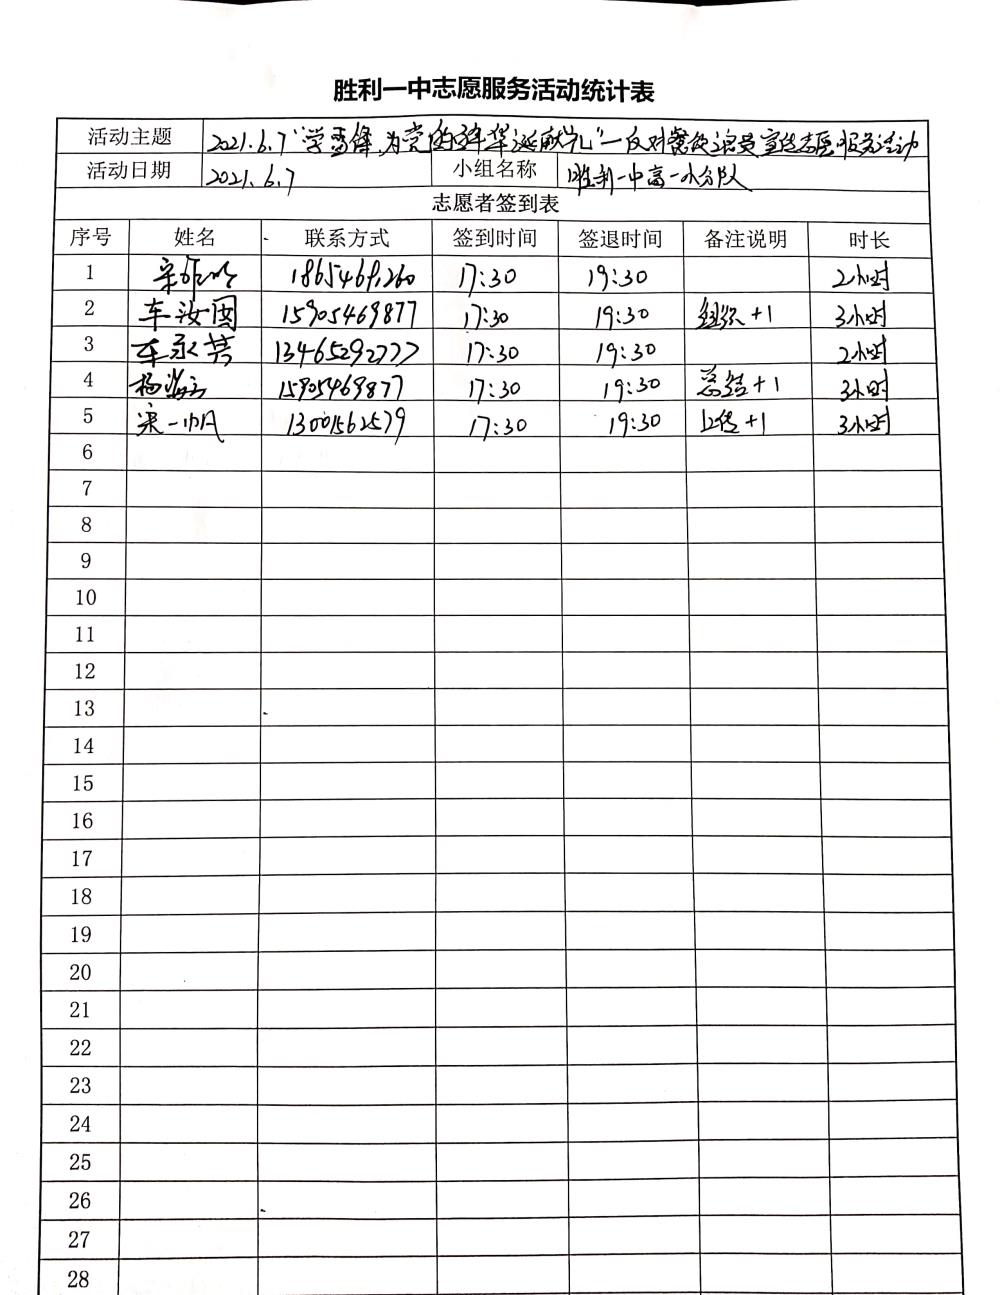 胜利一中志愿服务活动统计表
活动主题 2021.6.7"学雷锋,为党的百年华诞献礼"一反对餐饮浪费宣传志愿服务活动
活动日期 2021.6.7 小组名称 胜利一中高一小分队
志愿者签到表
序号 姓名 联系方式 签到时间 签退时间 备注说明 时长
1 17:30 19:30 2小时
2 车汝国 15905469877 17:30 19:30 组织+1 3小时
3 车永芳 13465292777 17:30 19:30 2小时
4 杨 15905469877 17:30 19:30 总结+1 3小时
5 梁一帆 13001562579 17:30 19:30 上传+1 3小时
6
7
8
9
10
11
12
13
14
15
16
17
18
19
20
21
22
23
24
25
26
27
28